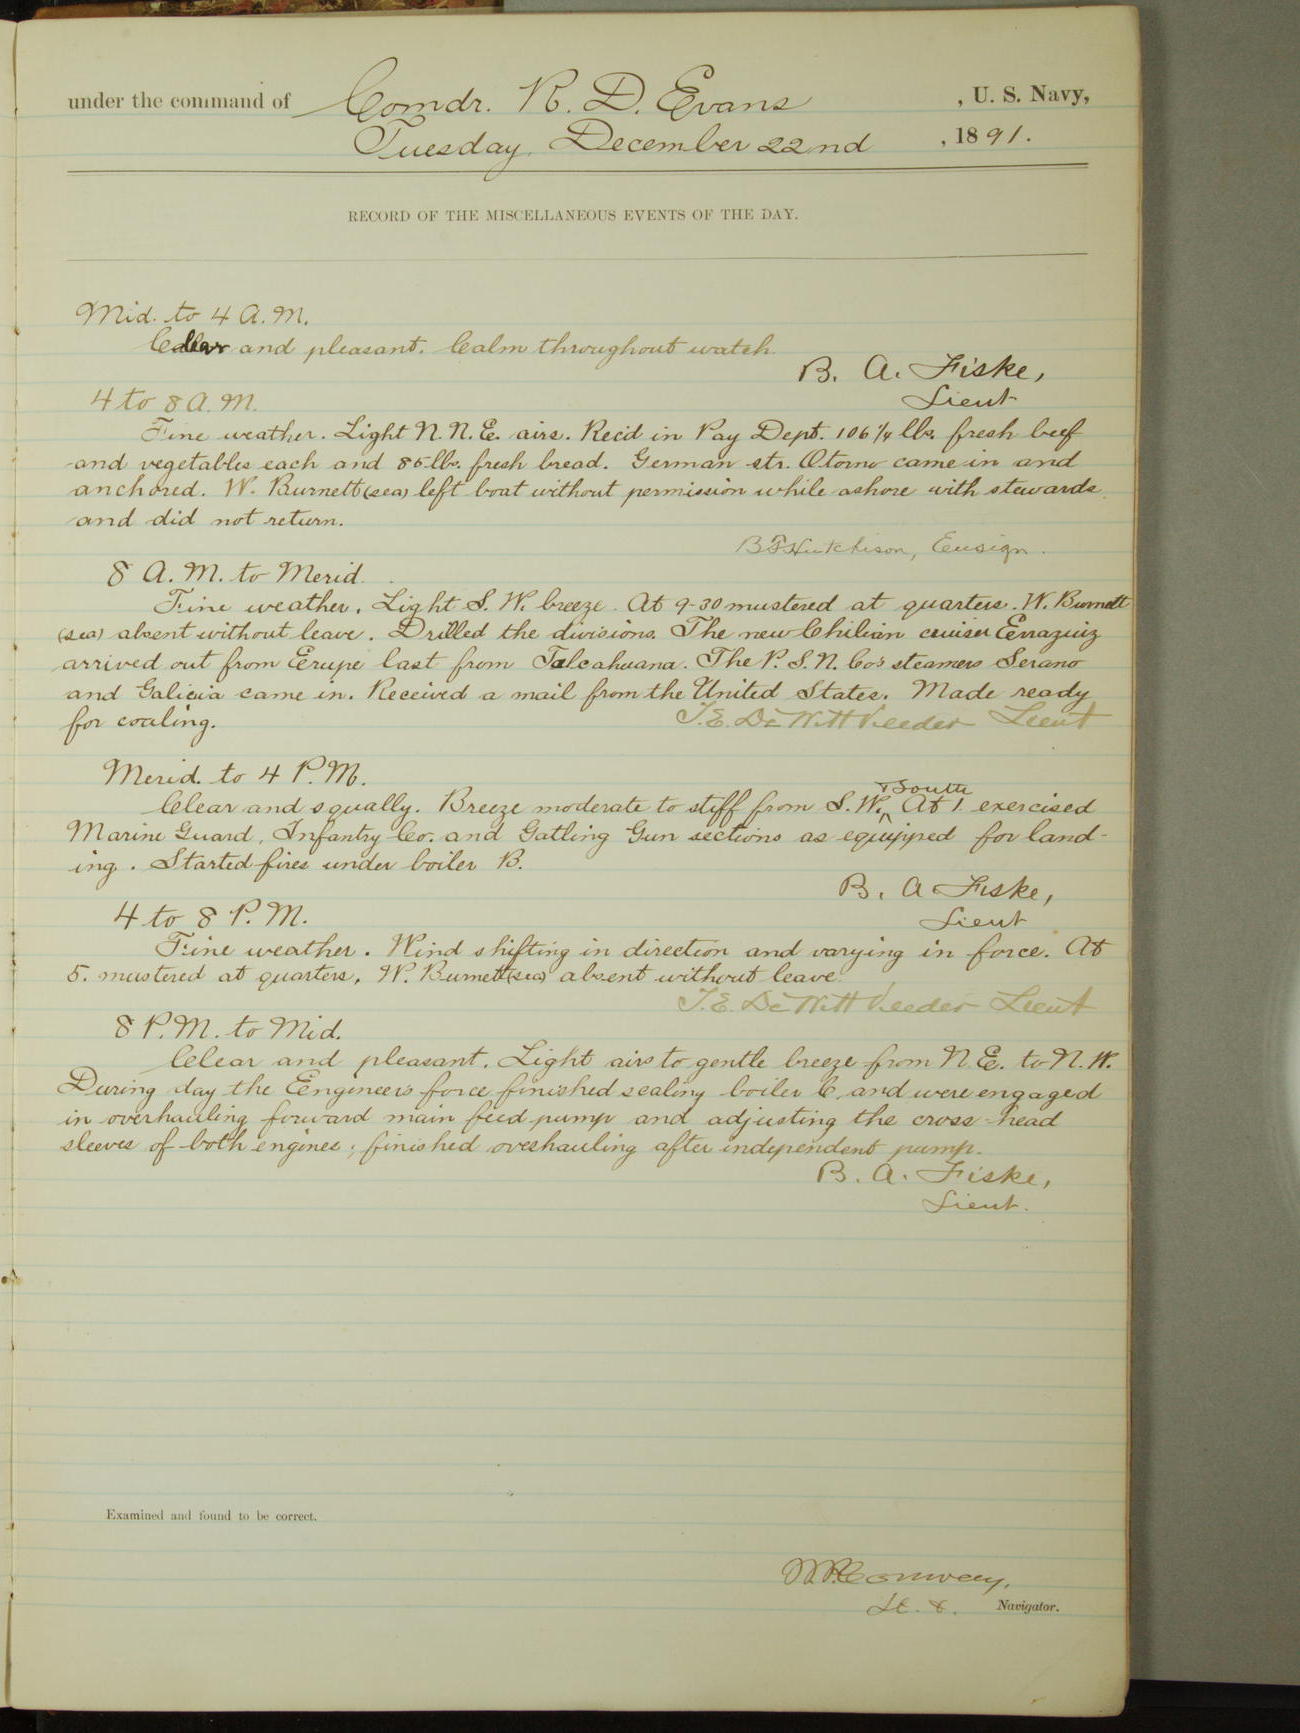 under the command of Comdr. R. D. Evans, U. S. Navy,
Tuesday, December 22nd, 1891.
RECORD OF THE MISCELLANEOUS EVENTS OF THE DAY.
Mid. to 4 A.M.
Clear and pleasant. Calm throughout watch.
B. A. Fiske,
Lieut
4 to 8 A.M.
Fine weather. Light N.N.E. airs. Rec'd in Pay Dept. 106 1/4 lbs. fresh beef
and vegetables each and 85 lbs. fresh bread. German str. Otorno came in and
anchored. W. Burnett (sea) left boat without permission while ashore with stewards
and did not return.
Hutchison, Ensign.
8 A.M. to Merid.
Fine weather. Light S. W. breeze. At 9-30 mustered at quarters. W. Burnett
(sea) absent without leave. Drilled the divisions. The new Chilian cruiser Errazuiz
arrived out from Erupe last from Talcahuana. The P. S. N. Co's steamers Serano
and Galicia came in. Received a mail from the United States. Made ready
for coaling.
T. E. DeWitt Veeder Lieut
Merid. to 4 P.M.
Clear and squally. Breeze moderate to stiff from S. W. & South At 1. exercised
Marine Guard, Infantry Co. and Gatling Gun sections as equipped for land-
ing. Started fires under boiler B.
B. A Fiske,
Lieut
4 to 8 P.M.
Fine weather. Wind shifting in direction and varying in force. At
5. mustered at quarters, W. Burnett (sea) absent without leave.
T. E. DeWitt Veeder Lieut
8 P.M. to Mid.
Clear and pleasant. Light airs to gentle breeze from N. E. to N. W.
During day the Engineer's force finished scaling boiler C, and were engaged
in overhauling forward main feed pump and adjusting the cross-head
sleeves of both engines; finished overhauling after independent pump.
B. A. Fiske,
Lieut.
Examined and found to be correct.
Conway,
Navigator.